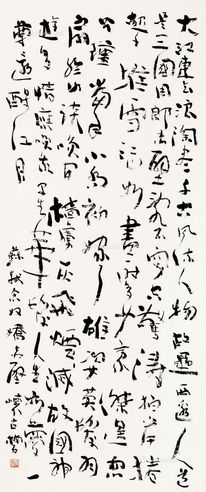 大江東去浪淘盡千古風流人物故壘西邊人道
是三國周郎赤壁亂石穿空驚濤拍岸捲
起千堆雪江山如畫一時多少豪傑遙想
公瑾當年小喬初嫁了雄姿英發羽
扇綸巾談笑間檣櫓灰飛煙滅故國神
遊多情應笑我早生華髮人生如夢一
尊還酹江月
蘇軾念奴嬌赤壁懷古